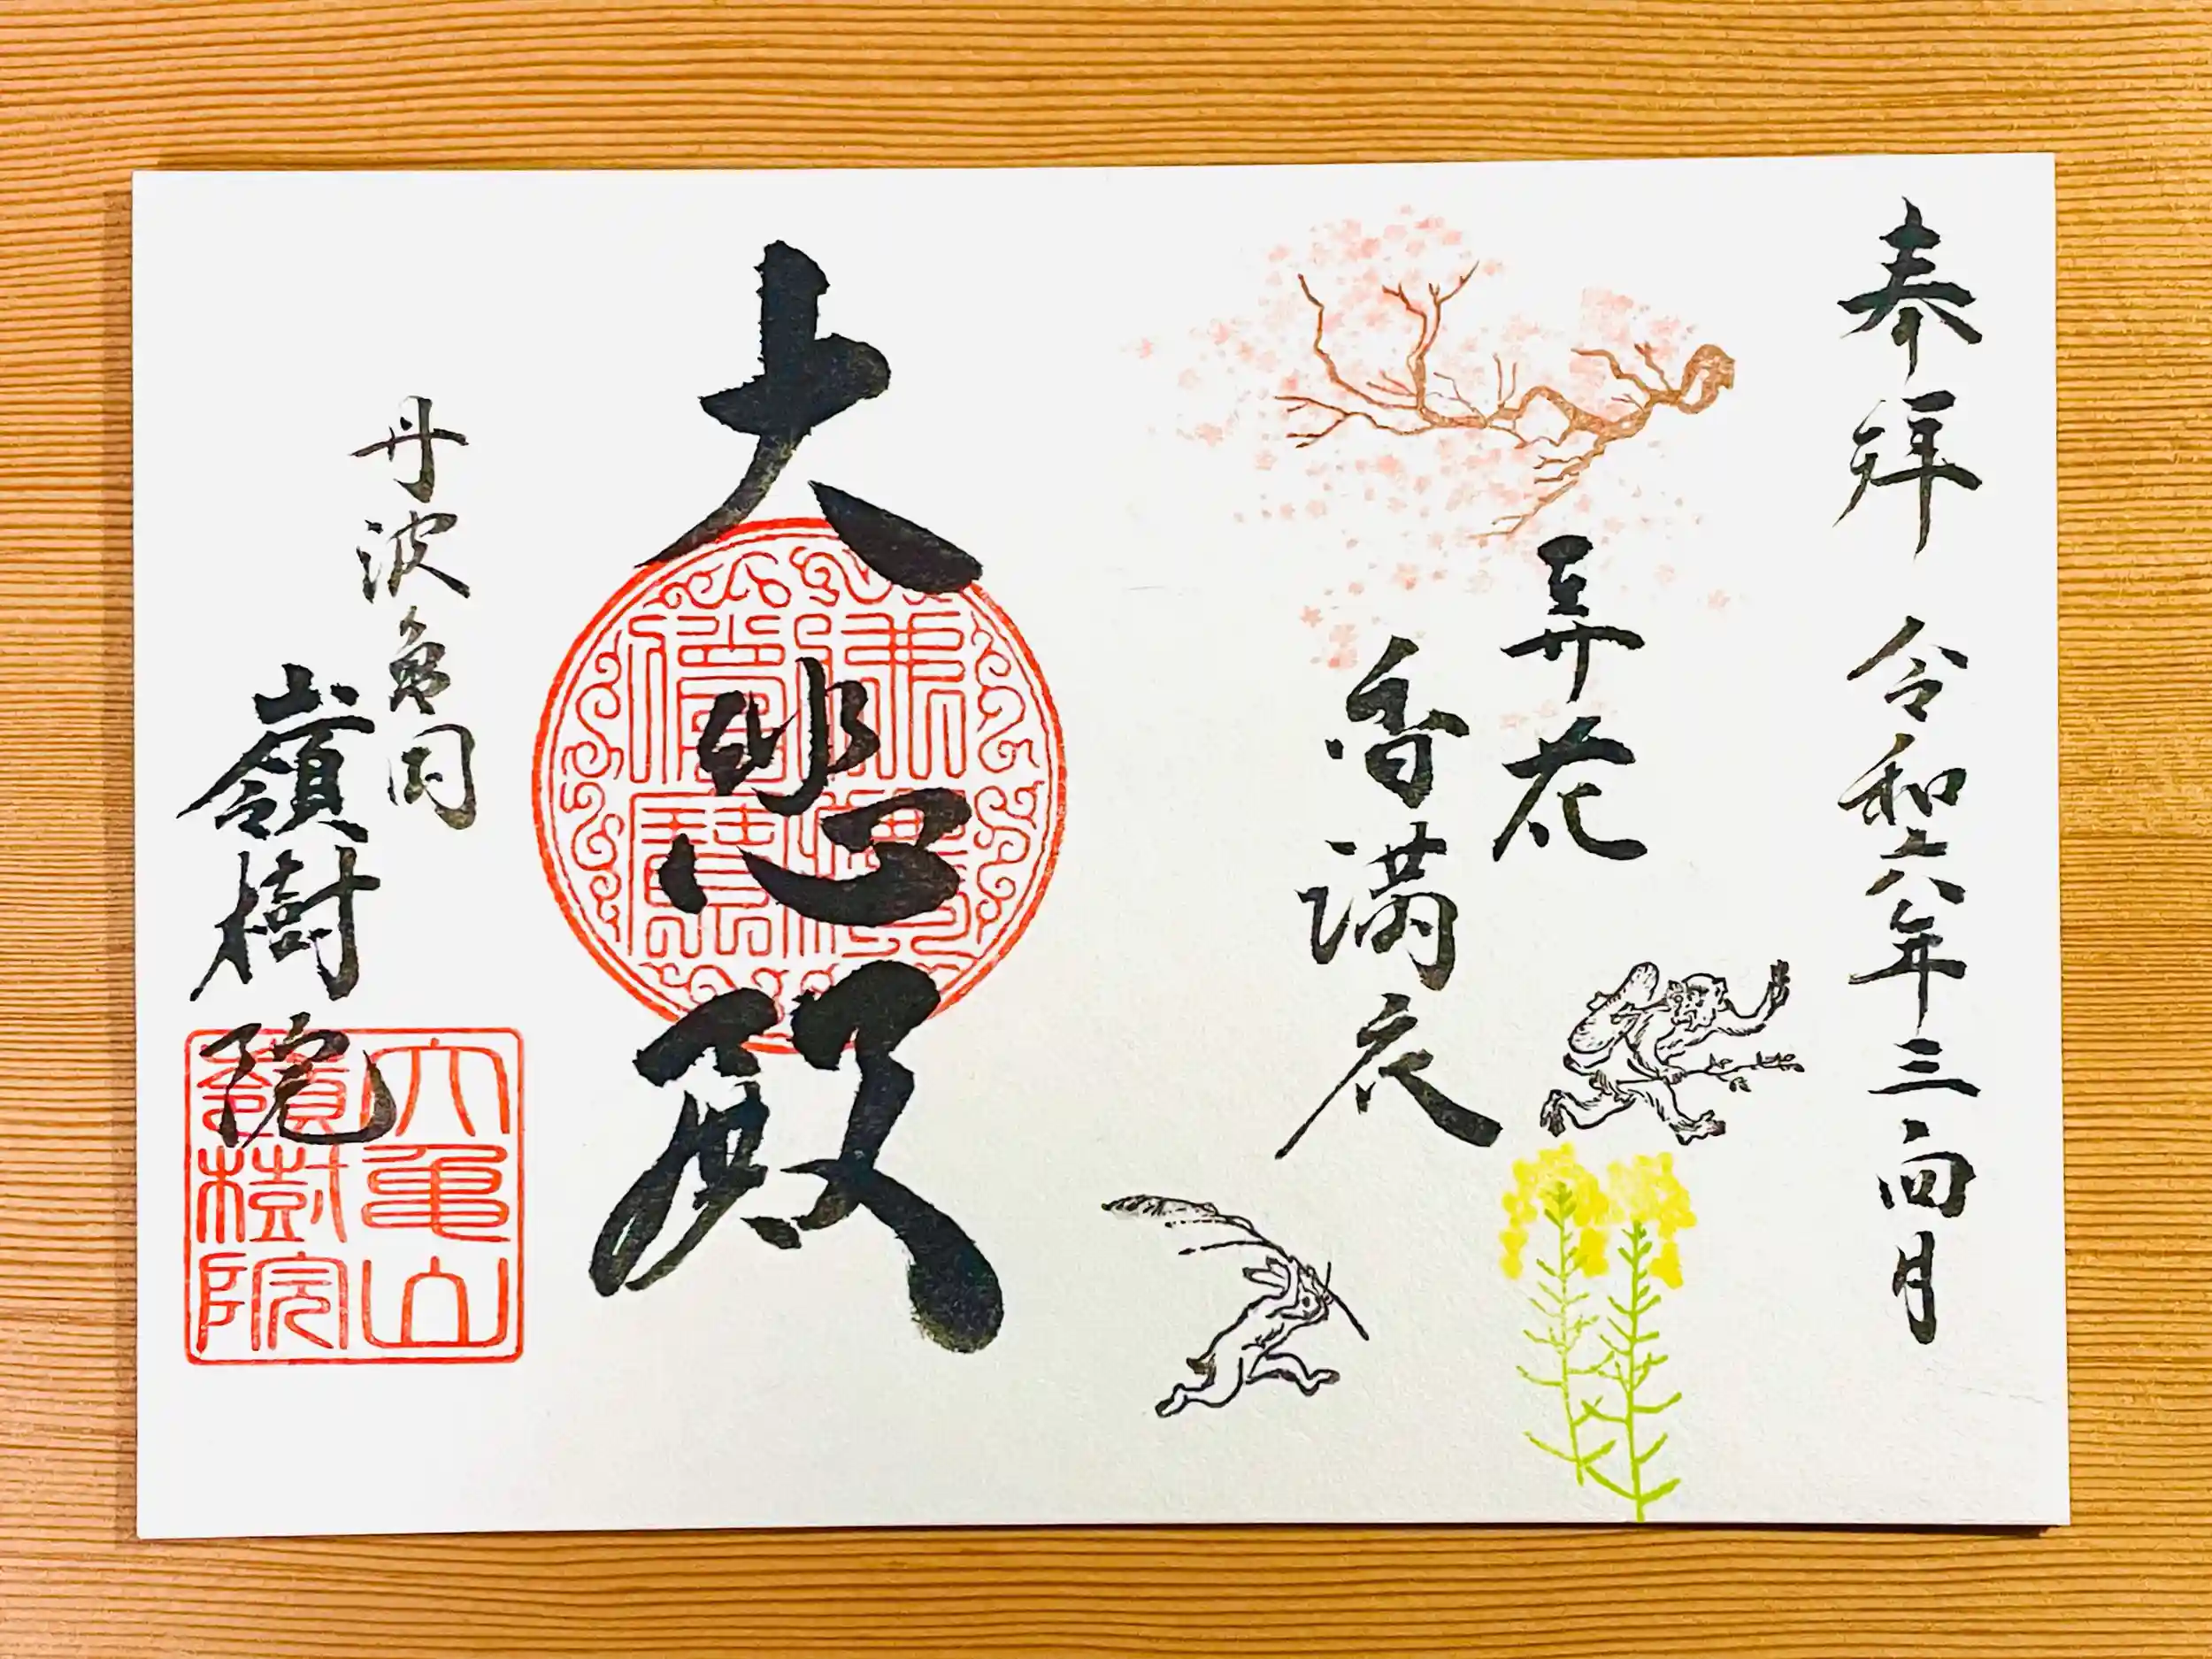 奉拝 令和六年三・四月
弄花
香満衣
大悲殿
佛法僧寶
丹波亀岡
嶺樹院
大亀山
嶺樹院